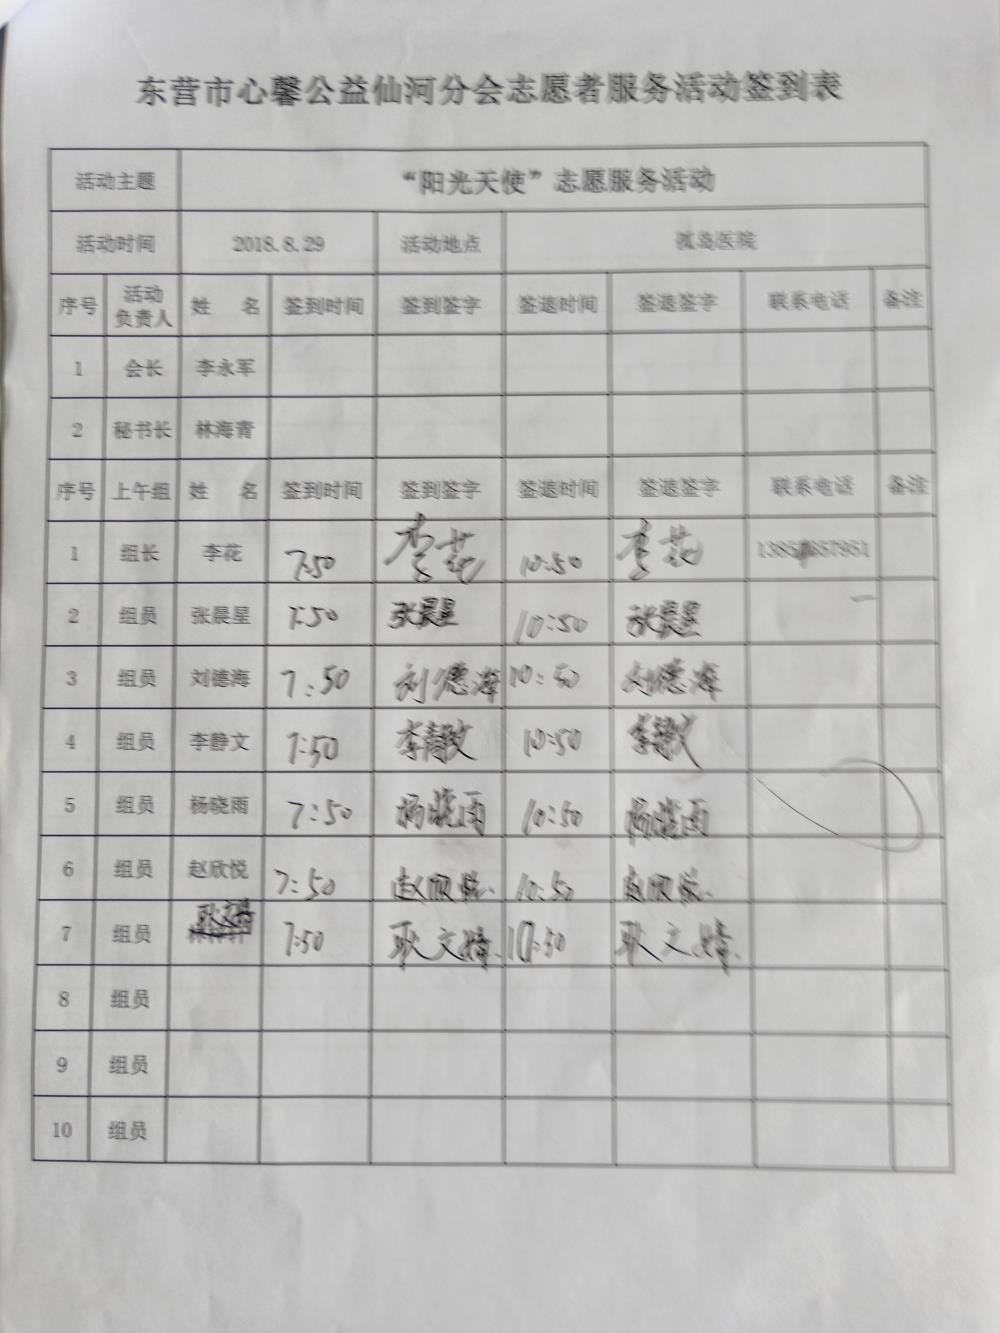 东营市心馨公益仙河分会志愿者服务活动签到表
活动主题 “阳光天使”志愿服务活动
活动时间 2018.8.29 活动地点 孤岛医院
序号 活动负责人 姓 名 签到时间 签到签字 签退时间 签退签字 联系电话 备注
1 会长 李永军
2 秘书长 林海青
序号 上午组 姓 名 签到时间 签到签字 签退时间 签退签字 联系电话 备注
1 组长 李花 7:50 李花 10:50 李花
2 组员 张晨星 7:50 张晨星 10:50 张晨星
3 组员 刘德海 7:50 刘德海 10:50 刘德海
4 组员 李静文 7:50 李静文 10:50 李静文
5 组员 杨晓雨 7:50 杨晓雨 10:50 杨晓雨
6 组员 赵欣悦 7:50 赵欣悦 10:50 赵欣悦
7 组员 7:50 耿文婧 10:50 耿文婧
8 组员
9 组员
10 组员